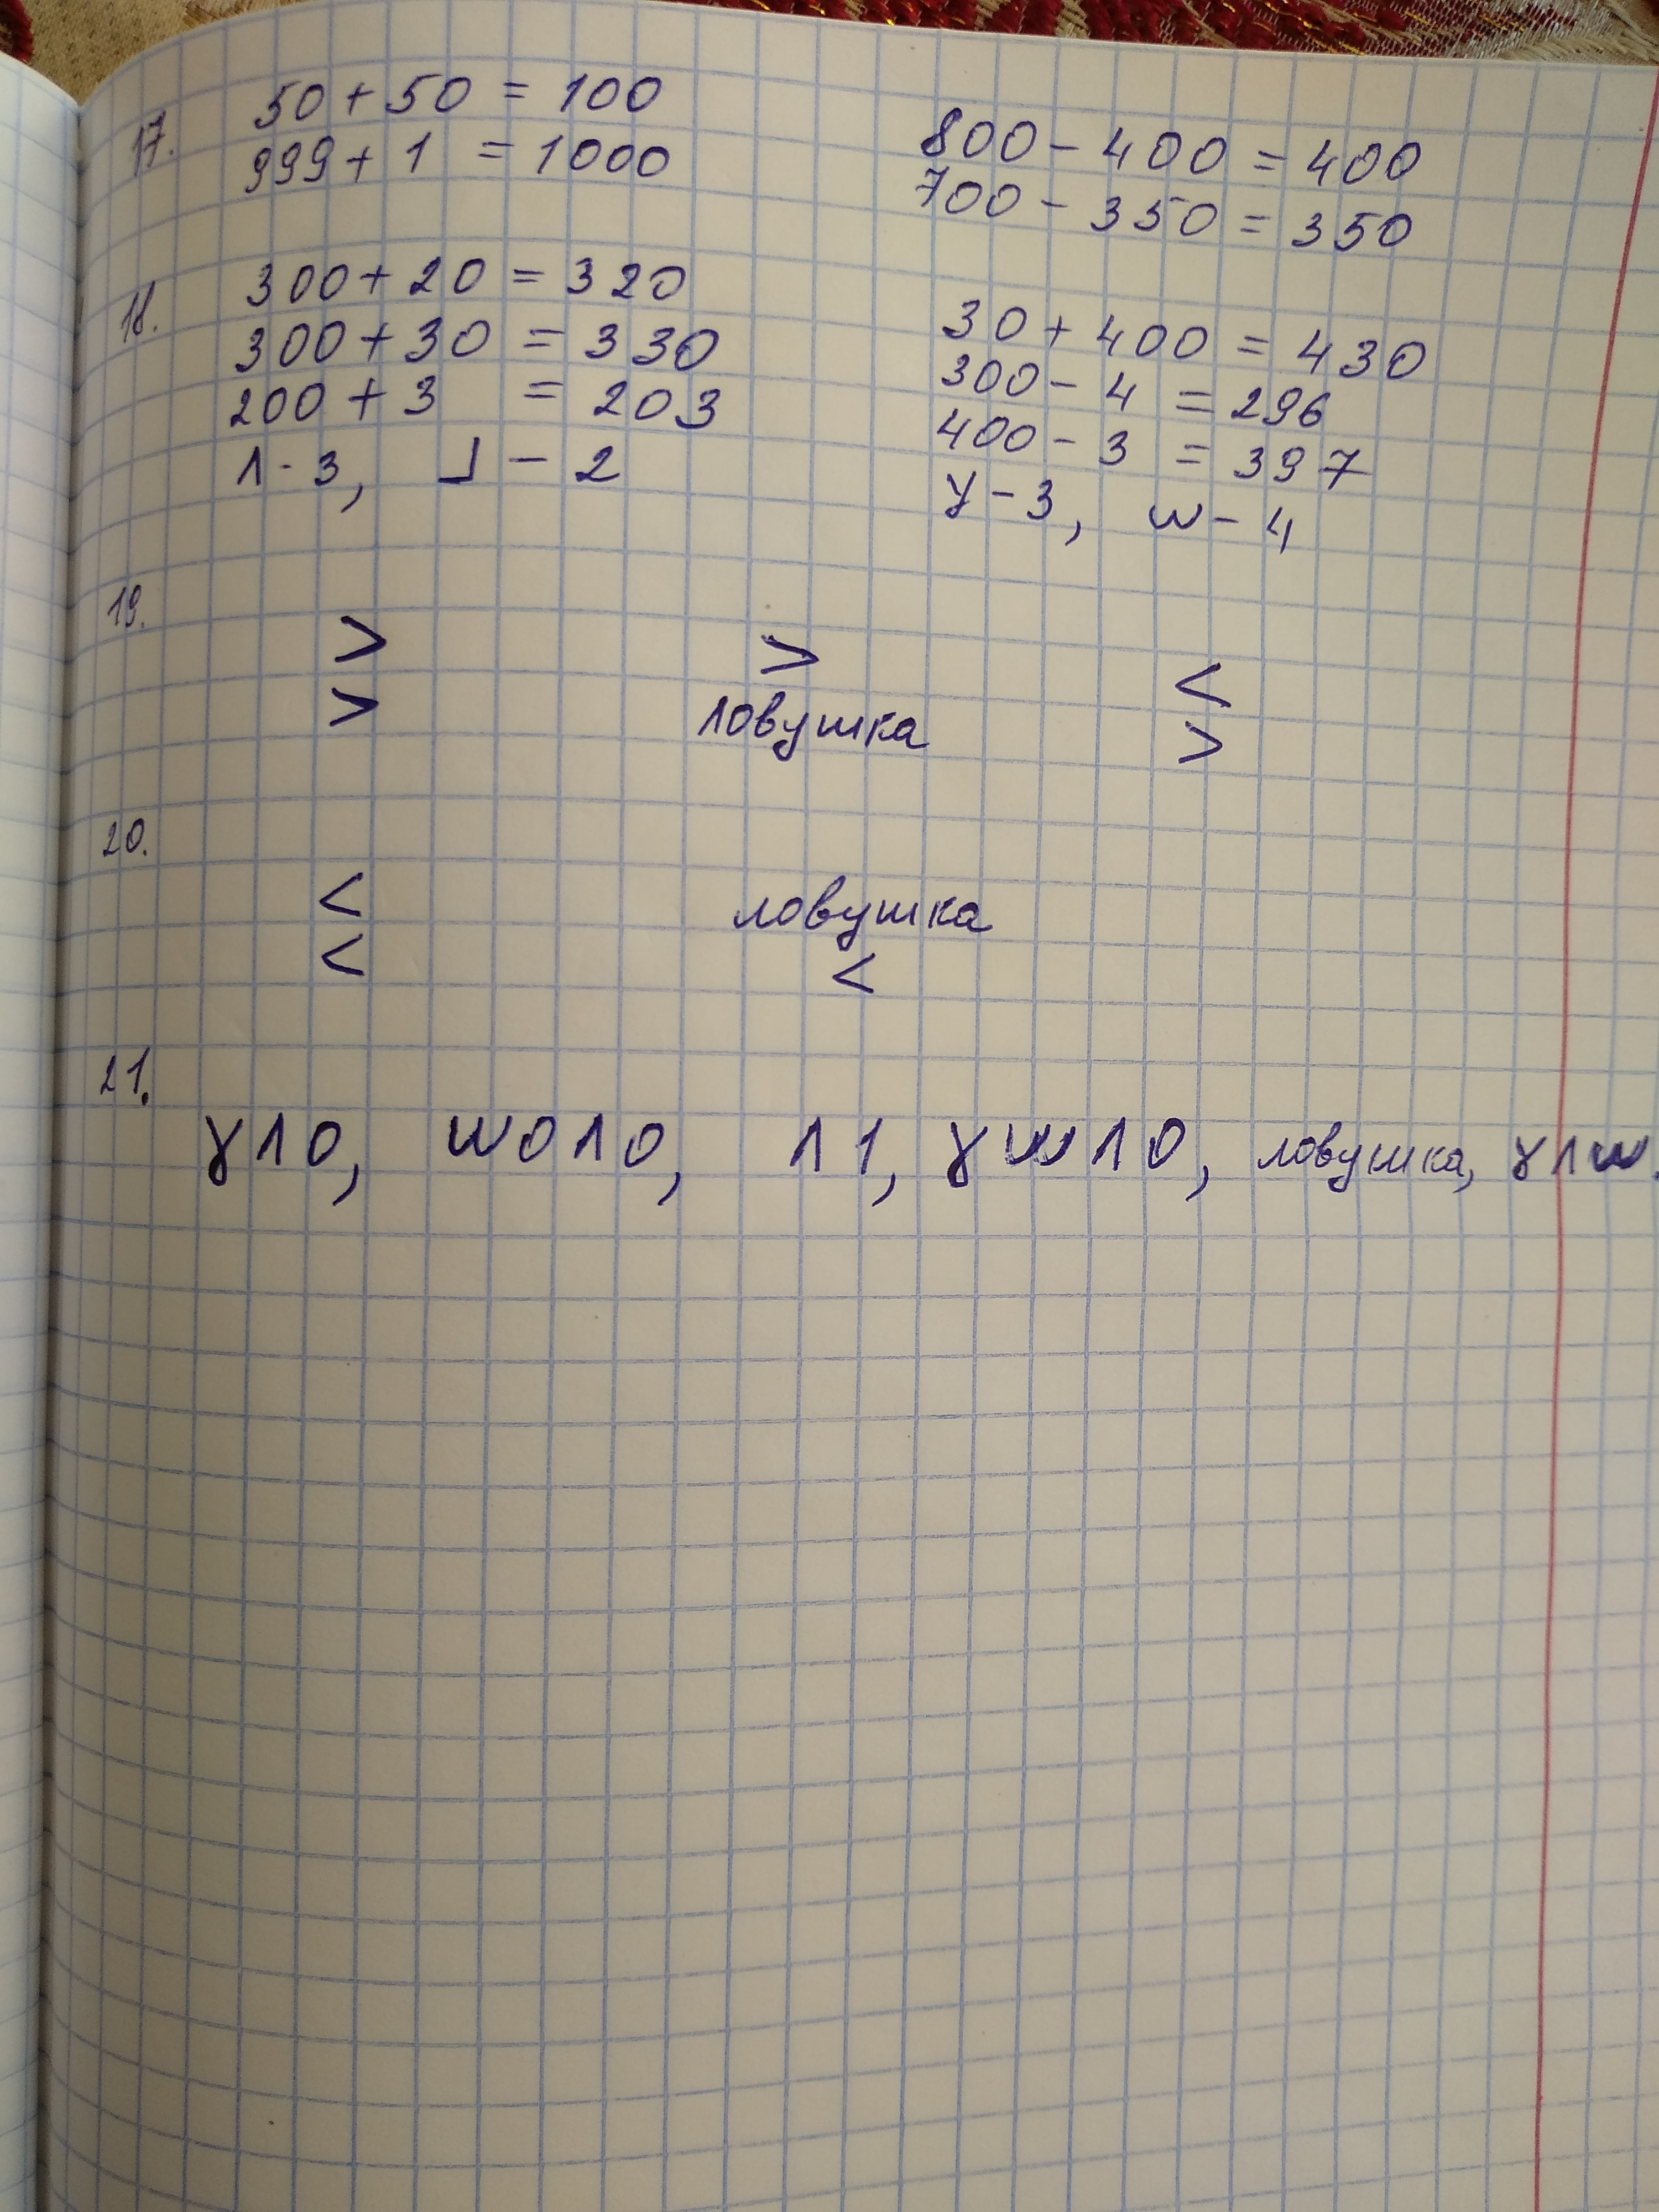 17. 50 + 50 = 100 800 - 400 = 400
999 + 1 = 1000 700 - 350 = 350
18. 300 + 20 = 320 30 + 400 = 430
300 + 30 = 330 300 - 4 = 296
200 + 3 = 203 400 - 3 = 397
Λ - 3, ┘ - 2 γ - 3, w - 4
19. > > <
> ловушка >
20. < ловушка
< <
21.
γ Λ 0, w 0 Λ 0, Λ 1, γ w Λ 0, ловушка, γ Λ w.